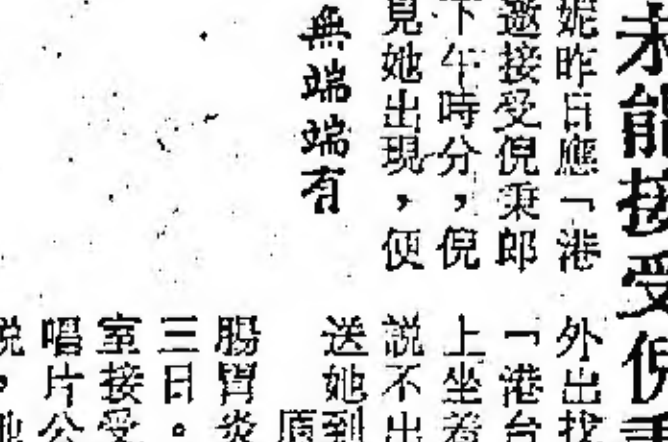 未能接受倪
妮昨日應「港
邀接受倪秉郎
下午時分，倪
見她出現，便
無端端有
外出找
「港台
上坐着
說不出
送她到
腸胃炎
三日。
室接受
唱片公